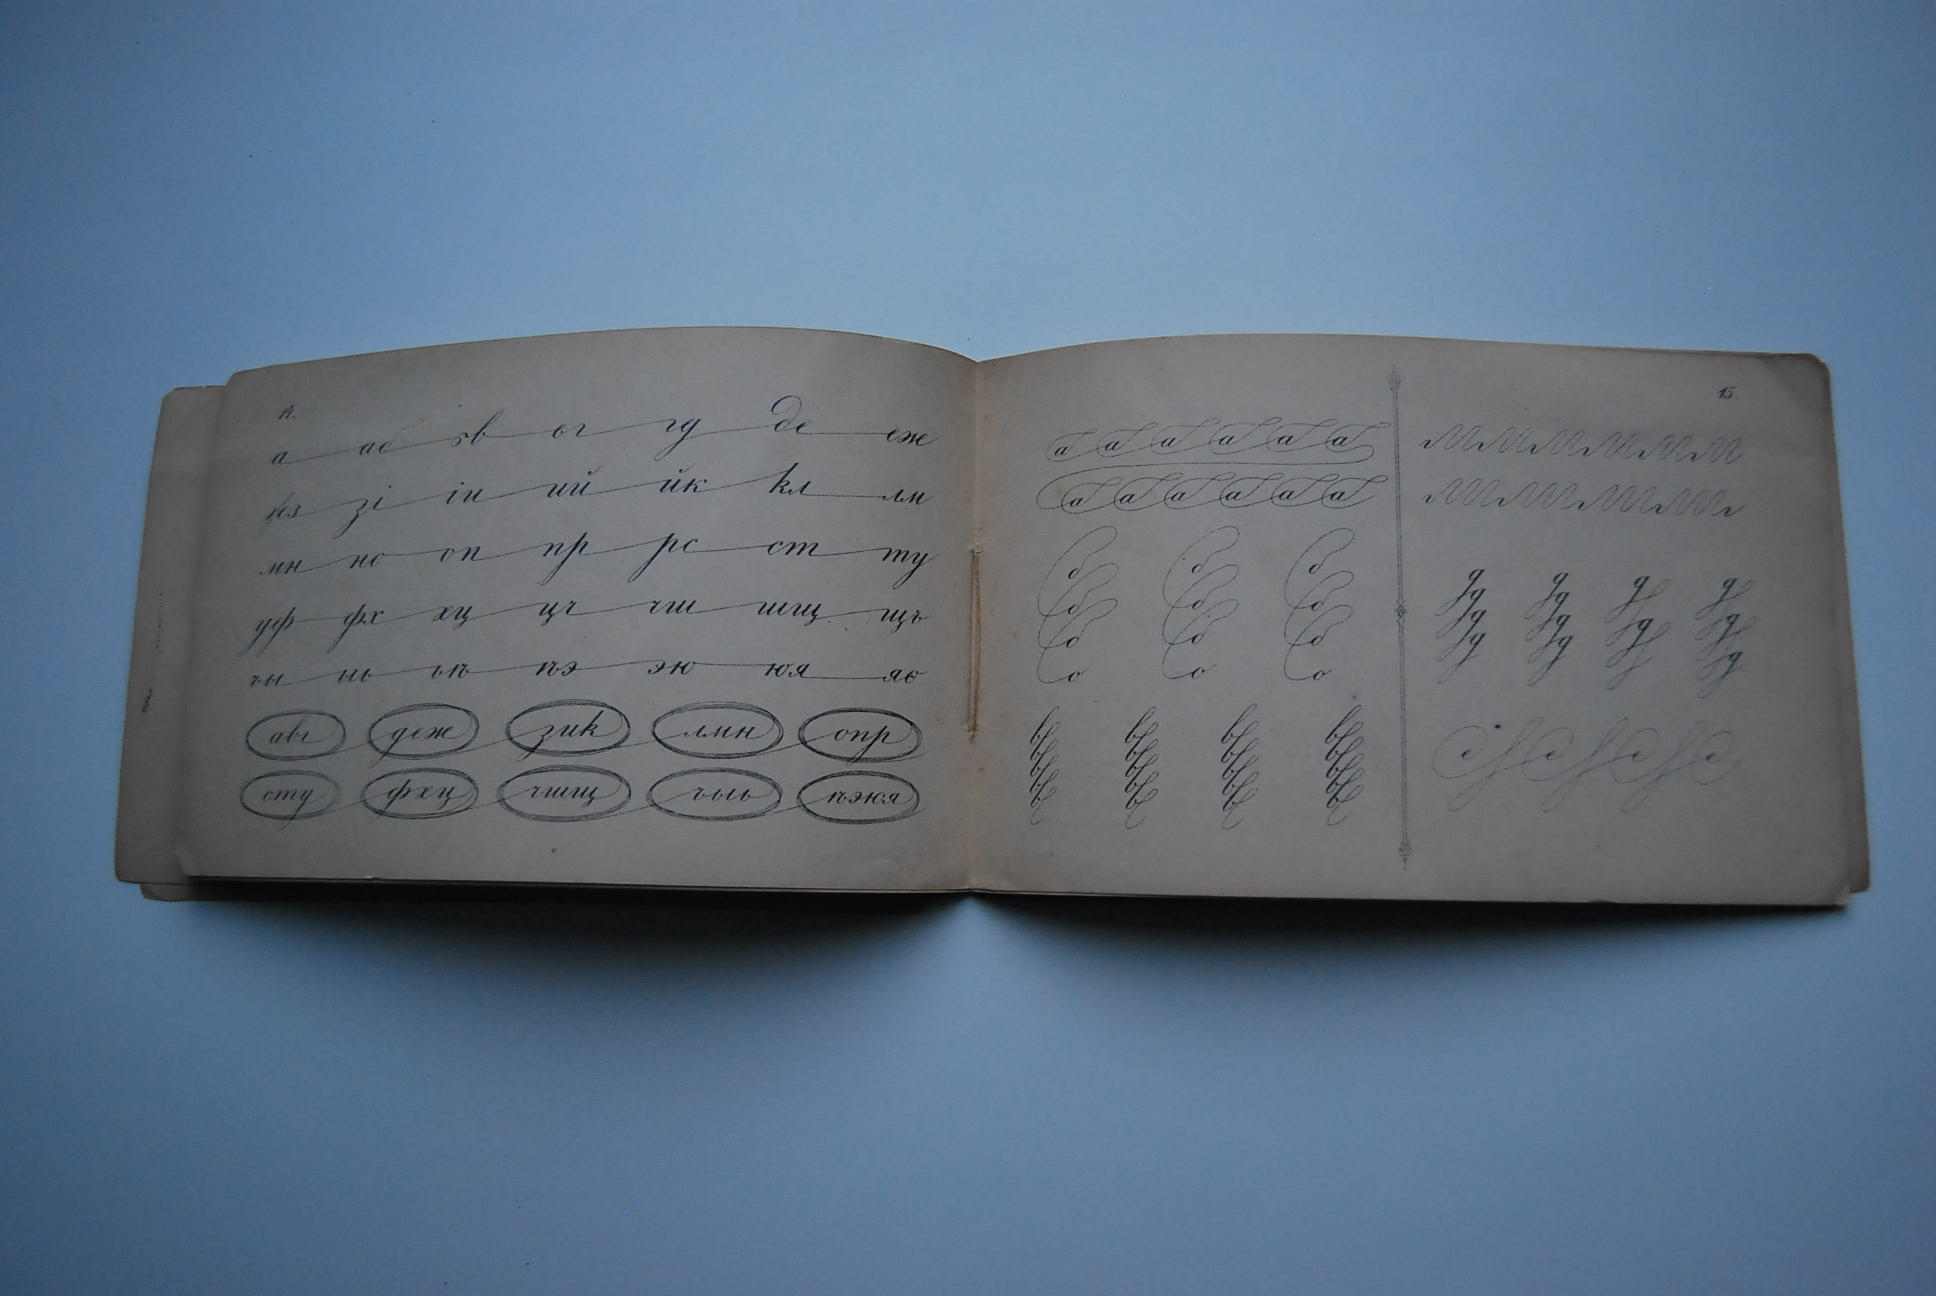 14.
а аб вв ог гд де еж
жз зі іи ий йк кл лм
мн но оп пр рс ст ту
уф фх хц цч чш шщ щъ
ъы ыь ьѣ ѣэ эю юя яо
авг деж зик лмн опр
сту фхц чшщ ъыь ѣэюя
15.
а а а а а а
а а а а а а
б б б
б б б
б б б
о о о
в в в в
в в в в
в в в в
в в в в
г г г г г г
г г г г г
д д д д
д д д д
д д д д
е е е е